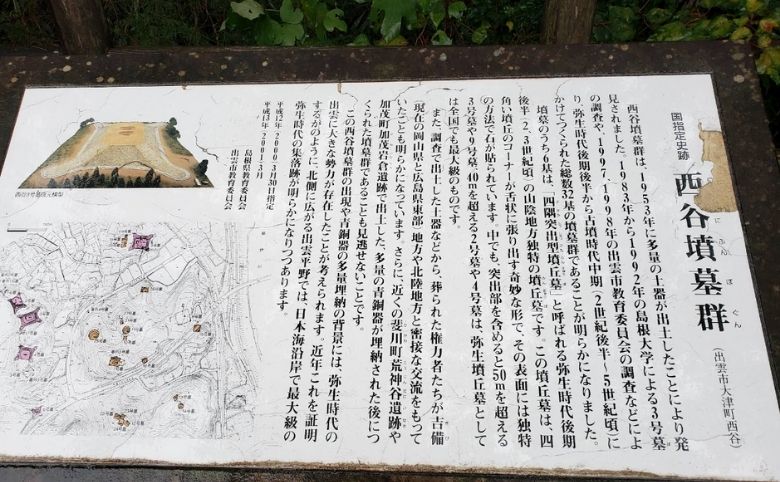 国指定史跡
西谷墳墓群
にしだにふんぼぐん
(出雲市大津町西谷)
西谷墳墓群は1953年に多量の土器が出土したことにより発
見されました。1983年から1992年の島根大学による3号墓
の調査や、1997、1998年の出雲市教育委員会の調査などによ
り、弥生時代後期後半から古墳時代中期(2世紀後半〜5世紀頃)に
かけてつくられた総数32基の墳墓群であることが明らかになりました。
墳墓のうち6基は、「四隅突出型墳丘墓」と呼ばれる弥生時代後期
後半(2、3世紀頃)の山陰地方独特の墳丘墓です。この墳丘墓は、四
角い墳丘のコーナーが舌状に張り出す奇妙な形で、その表面には独特
の方法で石が貼られています。中でも、突出部を含めると50mを超える
3号墓や9号墓、40mを超える2号墓や4号墓は、弥生墳丘墓として
は全国でも最大級のものです。
また、調査で出土した土器などから、葬られた権力者たちが、吉備
(現在の岡山県と広島県東部)地方や北陸地方と密接な交流をもって
いたことも明らかになっています。さらに、近くの斐川町荒神谷遺跡や
加茂町加茂岩倉遺跡で出土した、多量の青銅器が埋納された後につ
くられた墳墓群であることも見逃せないことです。
この西谷墳墓群の出現や青銅器の多量埋納の背景には、弥生時代の
出雲に大きな勢力が存在したことが考えられます。近年これを証明
するかのように、北側に広がる出雲平野では、日本海沿岸で最大級の
弥生時代の集落跡が明らかになりつつあります。
平成12年(2000)3月30日指定
平成13年(2001)3月
島根県教育委員会
出雲市教育委員会
西谷3号墓復元模型